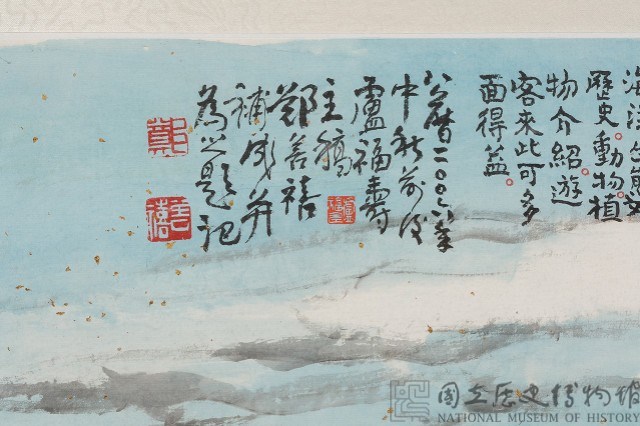 歷史。動物植
物介紹。遊
客來此可多
面得益。
公曆二〇〇六年
中秋前後
盧福壽
主稿
鄭善禧
補成并
為之題記
鄭
善禧
國立歷史博物館
NATIONAL MUSEUM OF HISTORY